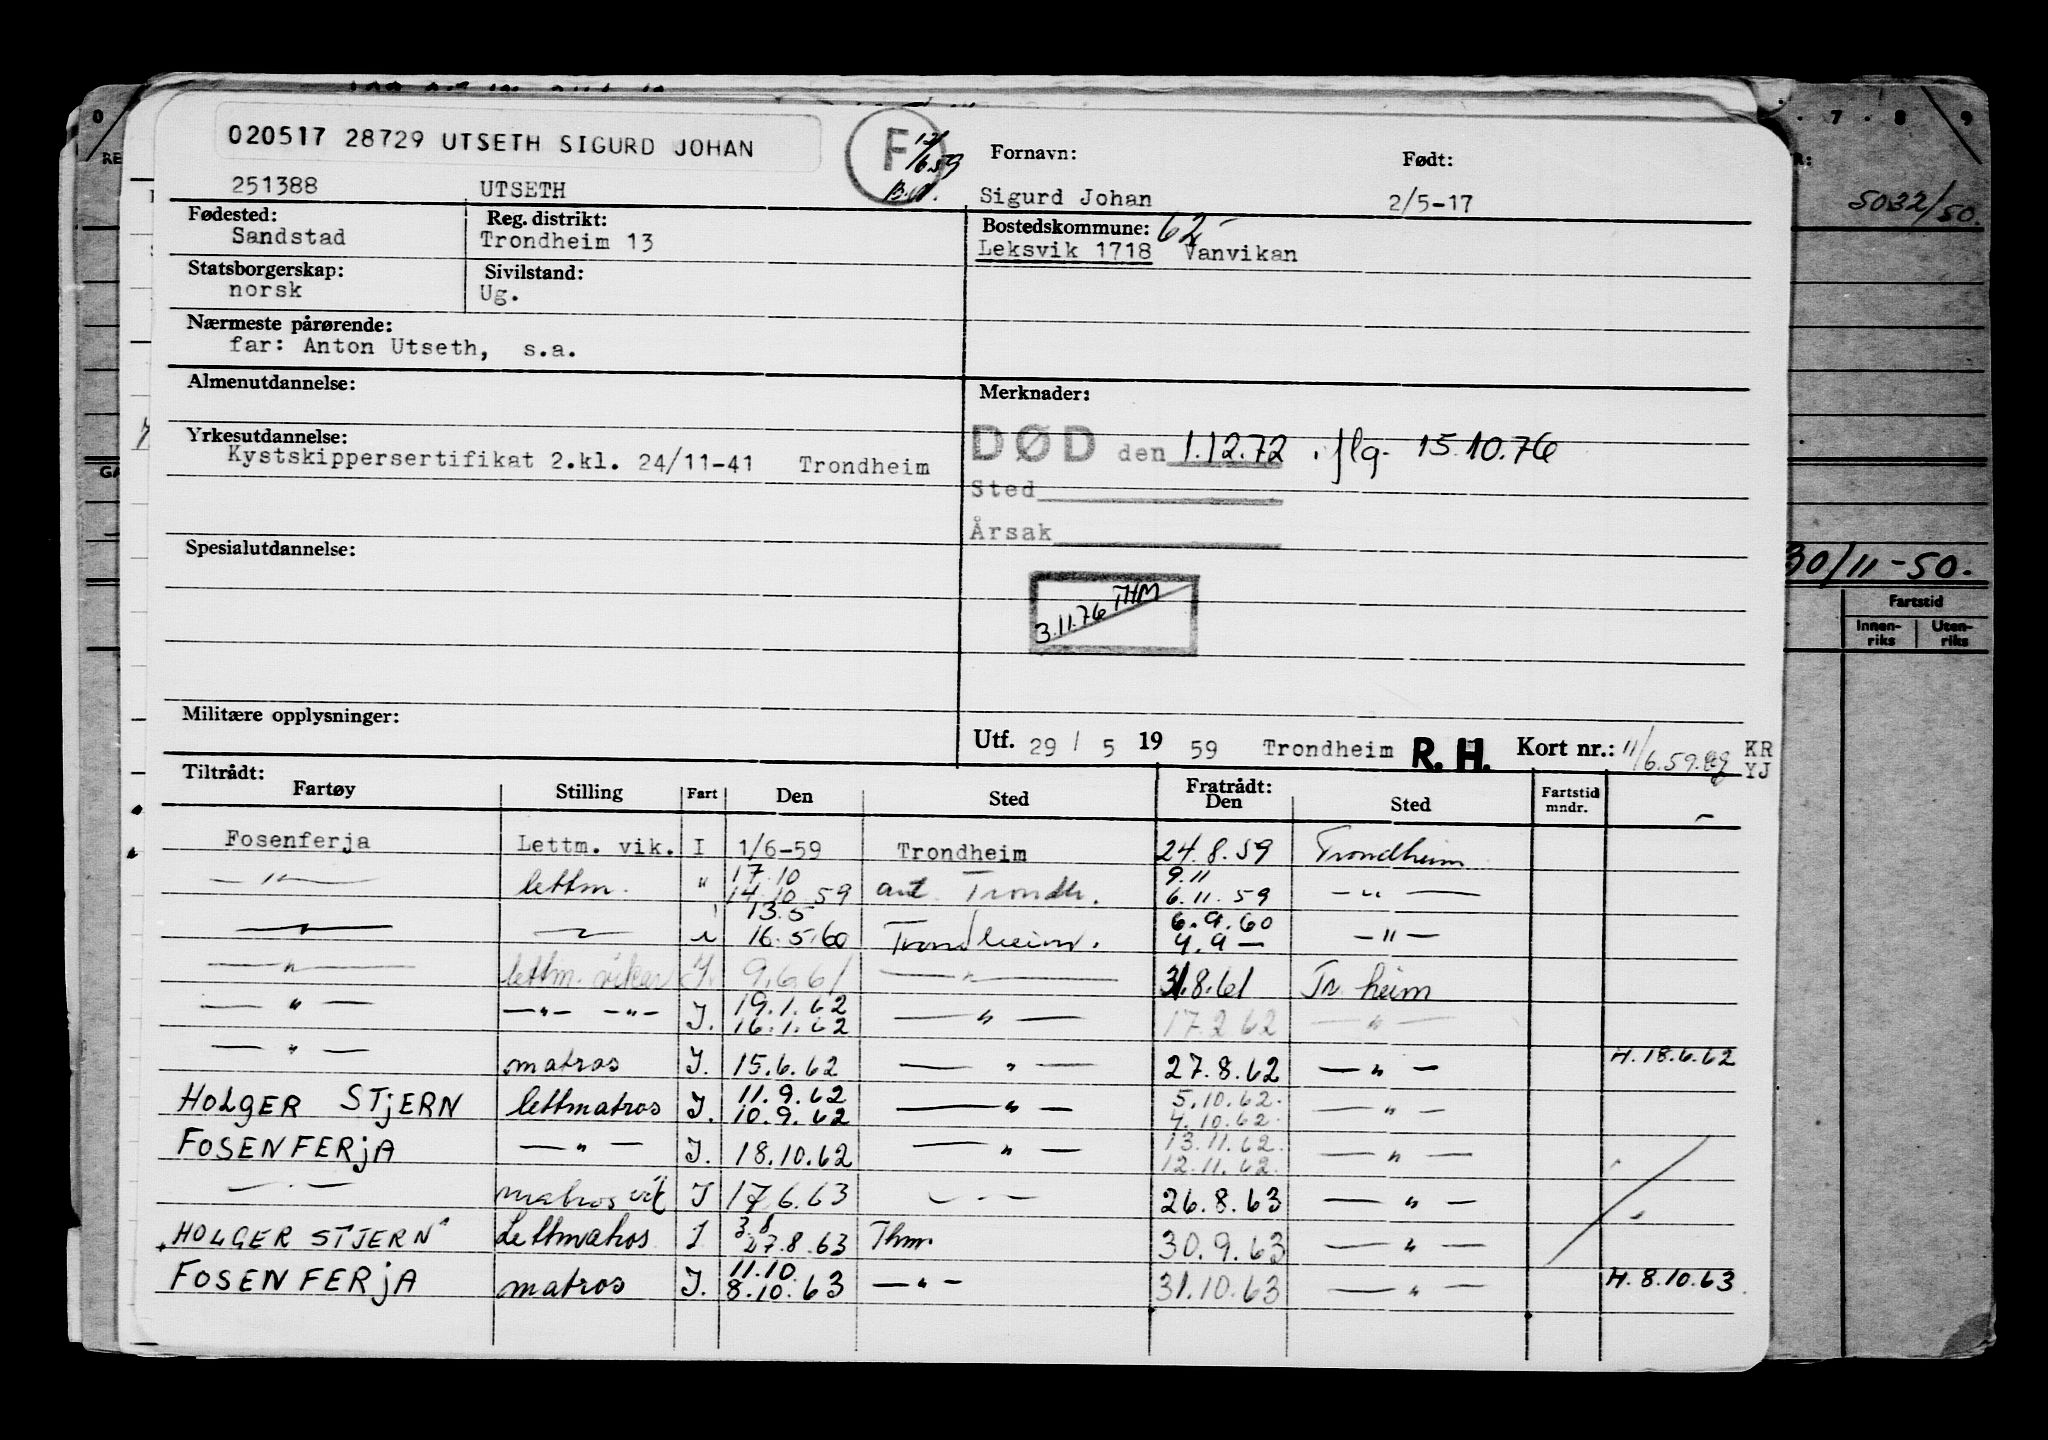 020517 28729 UTSETH SIGURD JOHAN
F
Fornavn: Født:
251388 UTSETH Sigurd Johan 2/5-17
Fødested: Reg. distrikt: Bostedskommune: 62
Sandstad Trondheim 13 Leksvik 1718 Vanvikan
Statsborgerskap: Sivilstand:
norsk Ug.
Nærmeste pårørende:
far: Anton Utseth, s.a.
Almenutdannelse: Merknader:
Yrkesutdannelse: DØD den 1.12.72 iflg. 15.10.76
Kystskippersertifikat 2.kl. 24/11-41 Trondheim
Sted
Årsak
Spesialutdannelse:
3.11.76 THM
Militære opplysninger:
Utf. 29 / 5 19 59 Trondheim R. H. Kort nr.: 11/6.59. KR
YJ
Tiltrådt: Fratrådt:
Fartøy Stilling Fart Den Sted Den Sted Fartstid mndr.
Fosenferja Lettm. vik. I 1/6-59 Trondheim 24.8.59 Trondheim
17.10 9.11
— " — lettm. " 14.10.59 Trondh. 6.11.59 — " —
13.5 6.9.60
— " — — " — " 16.5.60 Trondheim. 4.9 — — " —
— " — lettm. vikar I. 9.6.61 — " — 31.8.61 Tr.heim
19.1.62
— " — — " — — " — I. 16.1.62 — " — 17.2.62 — " —
— " — matros I. 15.6.62 — " — 27.8.62 — " — H. 18.6.62
11.9.62 5.10.62.
HOLGER STjERN lettmatros I. 10.9.62 — " — 4.10.62. — " —
13.11.62.
FOSENFERjA — " — I. 18.10.62 — " — 12.11.62. — " —
— " — matros vik I 17.6.63 — " — 26.8.63 — " —
"HOLGER STJERN" Lettmatros I 27.8.63 Thm. 30.9.63 — " —
11.10.
FOSENFERjA matros I. 8.10.63 — " — 31.10.63 — " — H. 8.10.63.
0
RE
GA
7 . 8 . 9
R:
5032/50.
30/11-50.
Fartstid
Innen-riks Uten-riks